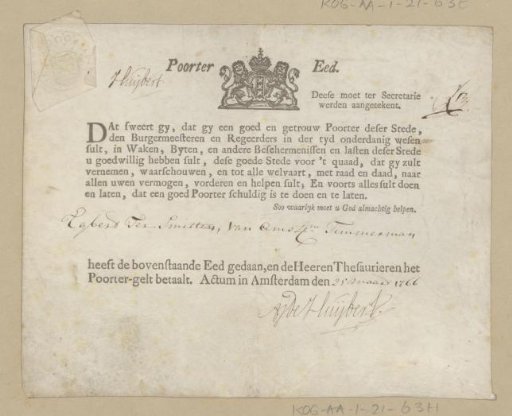 KOG-AA-1-21-63E
J Huijbert
Poorter Eed.
Deese moet ter Secretarie
werden aangetekent.
DAt sweert gy, dat gy een goed en getrouw Poorter deser Stede,
den Burgermeesteren en Regeerders in der tyd onderdanig wesen
sult, in Waken, Byten, en andere Beschermenissen en lasten deser Stede
u goedwillig hebben sult, dese goede Stede voor 't quaad, dat gy zult
vernemen, waarschouwen, en tot alle welvaart, met raad en daad, naar
allen uwen vermogen, vorderen en helpen sult, En voorts alles sult doen
en laten, dat een goed Poorter schuldig is te doen en te laten.
Soo waarlyk moet u God almachtig helpen.
Egbert Ter Smitten, van Amst Timmerman
heeft de bovenstaande Eed gedaan, en de Heeren Thesaurieren het
Poorter-gelt betaalt. Actum in Amsterdam den 1766
Huijbert
KOG-AA-1-21-63H